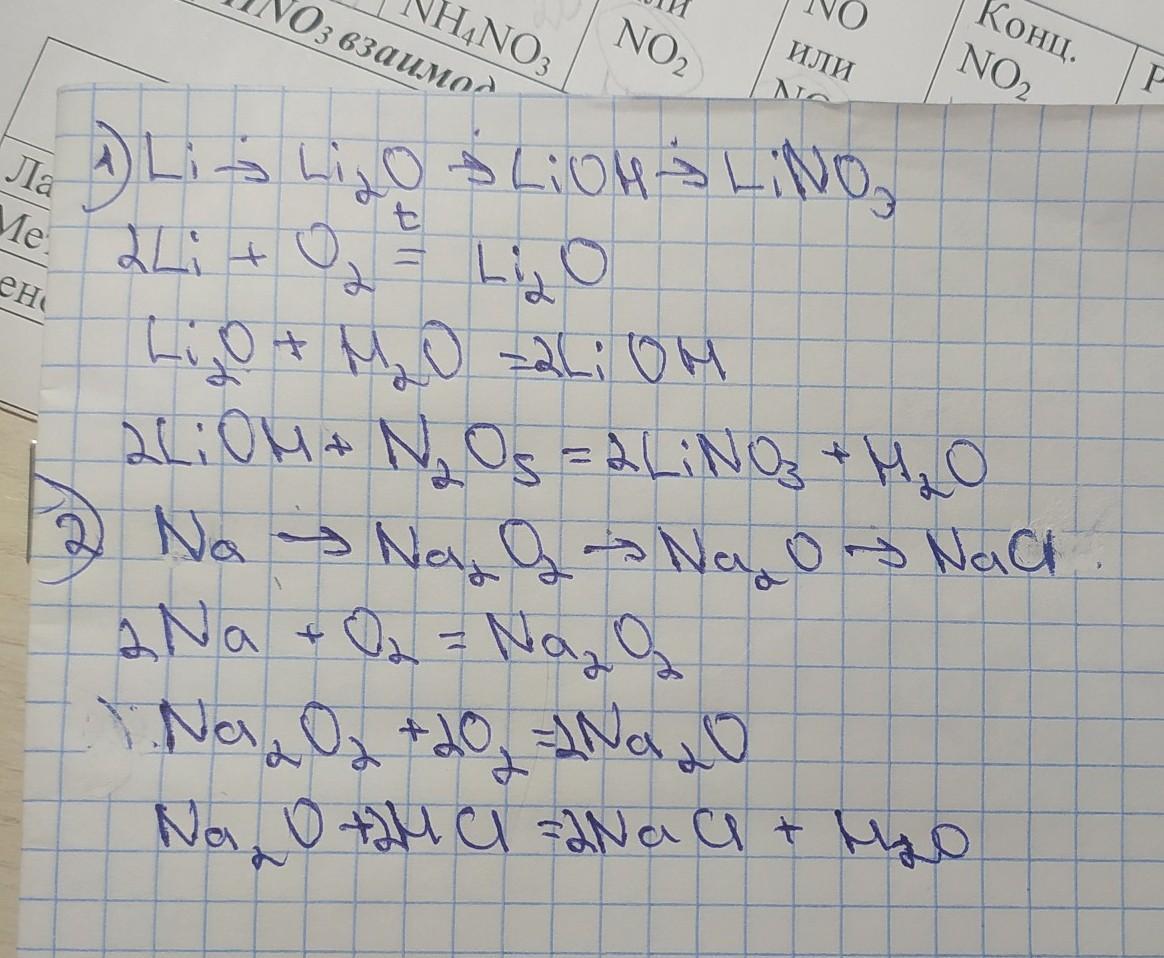 HNO3 взаимод
NH4NO3
NO2
NO
или
Конц.
NO2
Р
Ла
Ме
ен
1) Li → Li2O → LiOH → LiNO3
2Li + O2 t= Li2O
Li2O + H2O =2LiOH
2LiOH + N2O5 = 2LiNO3 + H2O
2) Na → Na2O2 → Na2O → NaCl
2Na + O2 = Na2O2
Na2O2 +2O2 =2Na2O
Na2O +2HCl =2NaCl + H2O